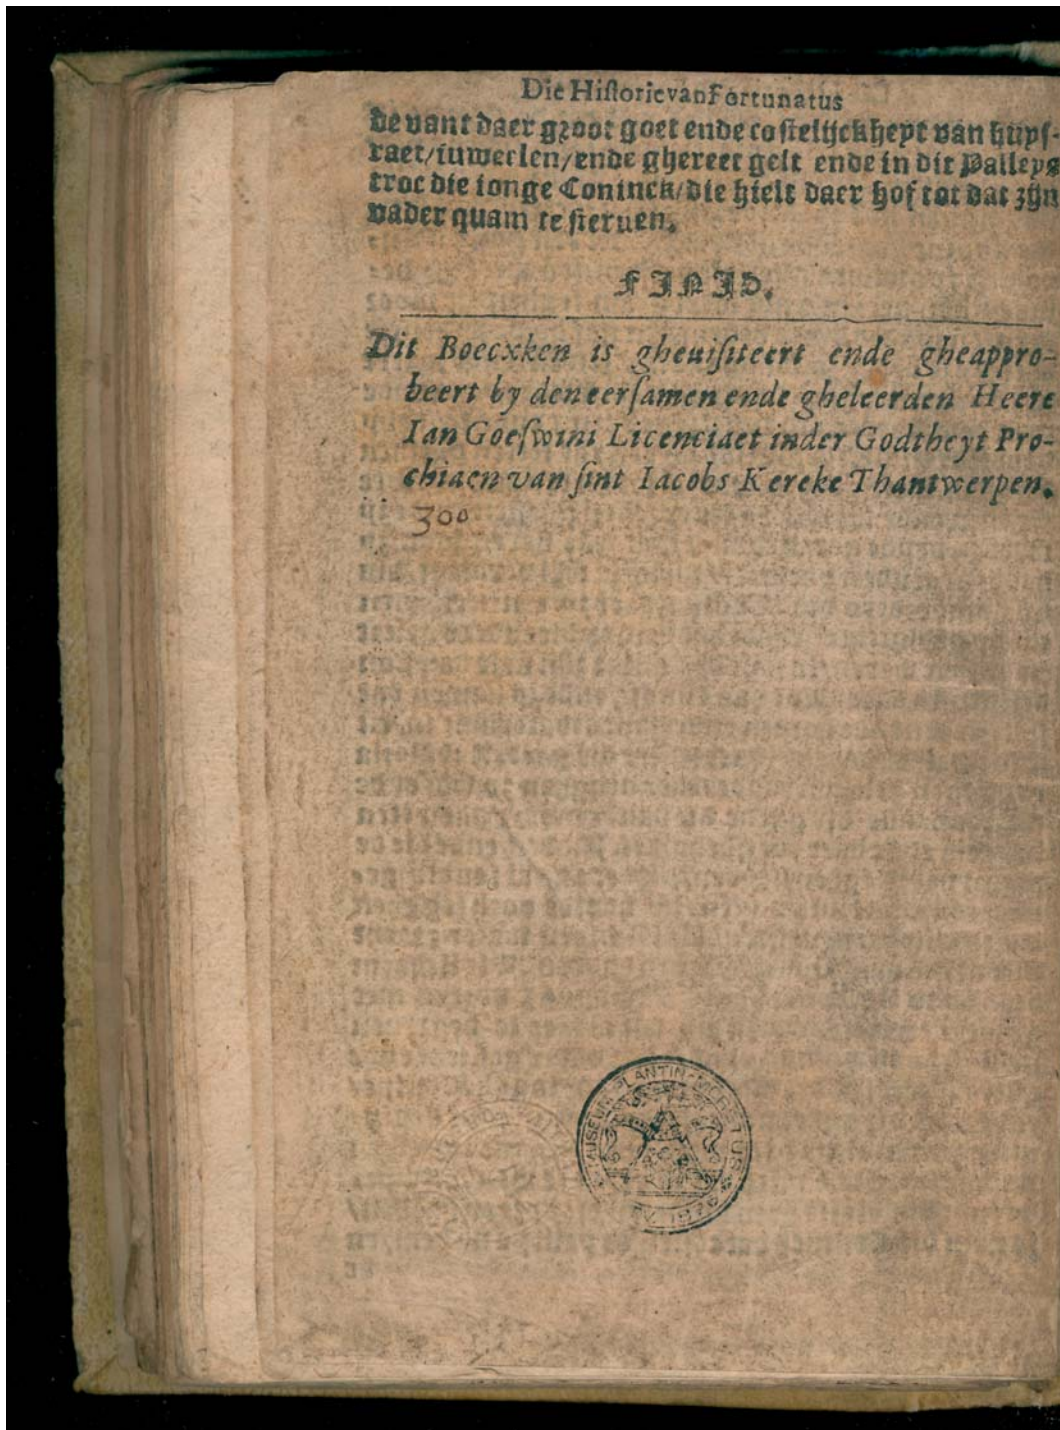 Die Historie van Fortunatus
de vant daer groot goet ende costelijckheyt van huys-
raet/iuweelen/ende ghereet gelt ende in dit Palleys
troc die ionge Coninck/die hielt daer hof tot dat zijn
vader quam te steruen.
FINIS.
Dit Boecxken is gheuisiteert ende gheappro-
beert by den eersamen ende gheleerden Heere
Ian Goeswini Licenciaet inder Godtheyt Pro-
chiaen van sint Iacobs Kercke Thantwerpen.
300
MUSEUM PLANTIN-MORETUS
1876